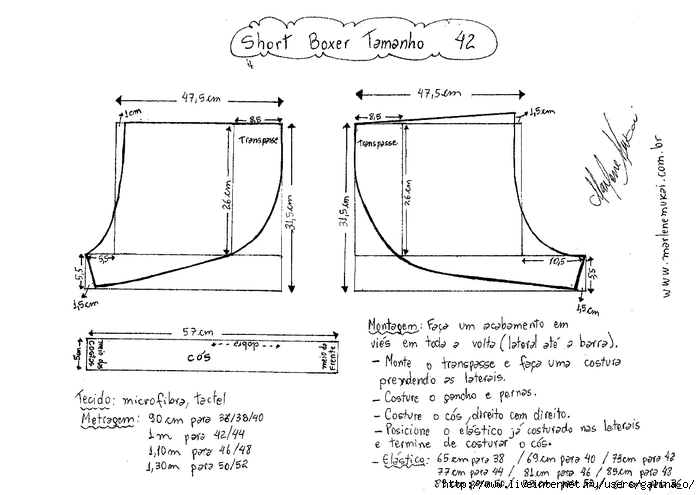 Short Boxer Tamanho 42
47,5cm
1cm
8,5
Transpasse
26cm
31,5cm
5,5
5,5
1,5cm
47,5cm
8,5
1,5cm
Transpasse
31,5cm
26cm
10,5
5,5
1,5cm
Marlene Mukai
www.marlenemukai.com.br
57cm
5cm
meio das costas
cós
dobra
meio da frente
Tecido: microfibra, tactel
Metragem: 90cm para 36/38/40
1m para 42/44
1,10m para 46/48
1,30m para 50/52
Montagem: Faça um acabamento em
viés em toda a volta (lateral até a barra).
- Monte o transpasse e faça uma costura
prendendo as laterais.
- Costure o gancho e pernas.
- Costure o cós, direito com direito.
- Posicione o elástico já costurado nas laterais
e termine de costurar o cós.
- Elástico: 65cm para 38 / 69cm para 40 / 73cm para 42
77cm para 44 / 81cm para 46 / 85cm para 48